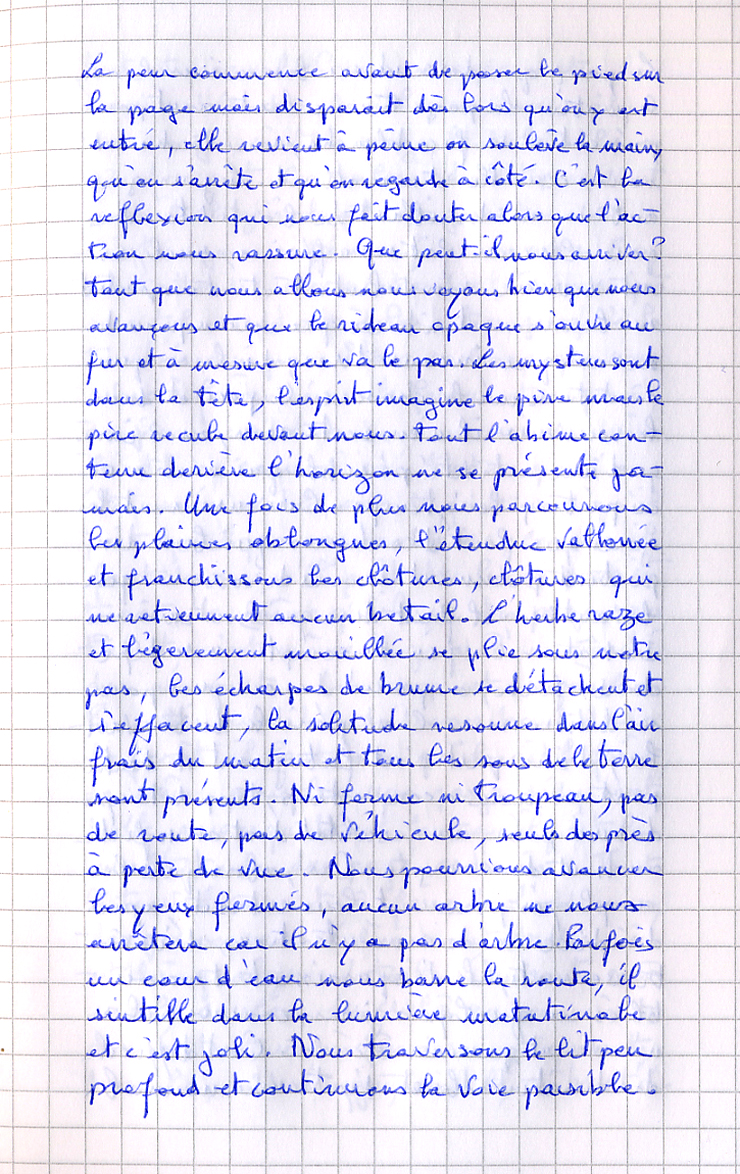 La peur commence avant de poser le pied sur
la page mais disparaît dès lors qu'on y est
entré, elle revient à peine on soulève la main,
qu'on s'arrête et qu'on regarde à côté. C'est la
reflexion qui nous fait douter alors que l'ac-
tion nous rassure. Que peut-il nous arriver?
tant que nous allons nous voyons bien que nous
avançons et que le rideau opaque s'ouvre au
fur et à mesure que va le pas. Les mystères sont
dans la tête, l'esprit imagine le pire mais le
pire recule devant nous. Tout l'abime con-
tenu derière l'horizon ne se présente ja-
mais. Une fois de plus nous parcourons
les plaines oblongues, l'étendue vallonée
et franchissons les clôtures, clôtures qui
ne retiennent aucun betail. L'herbe raze
et légerement mouillée se plie sous notre
pas, les écharpes de brume se détachent et
s'effacent, la solitude resonne dans l'air
frais du matin et tous les sons de la terre
sont présents. Ni ferme ni troupeau, pas
de route, pas de véhicule, seuls des près
à perte de vue. Nous pourrions avancer
les yeux fermés, aucun arbre ne nous
arrêtera car il n'y a pas d'arbre. Parfois
un cour d'eau nous barre la route, il
sintille dans la lumière matutinale
et c'est joli. Nous traversons le lit peu
profond et continuons la voie paisible.